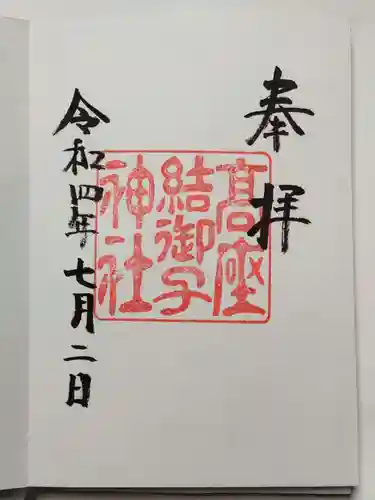 奉拝
髙座
結御子
神社
令和四年七月二日